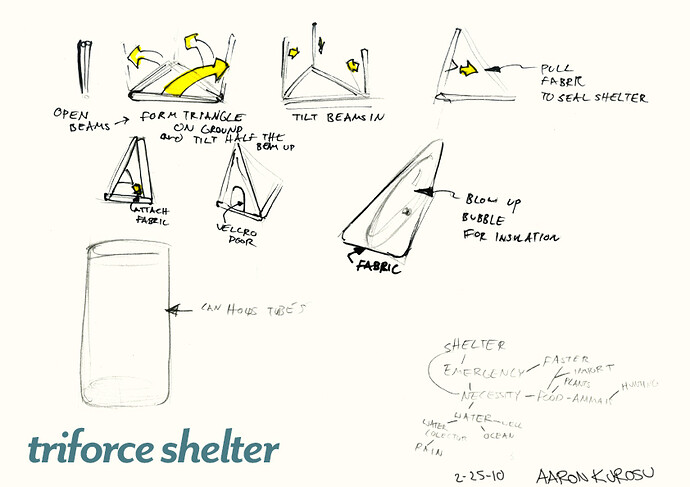 OPEN
BEAMS
FORM TRIANGLE
ON GROUND
and TILT HALF THE
BEAM UP
TILT BEAMS IN
PULL
FABRIC
TO SEAL SHELTER
ATTACH
FABRIC
VELCRO
DOOR
BLOW UP
BUBBLE
FOR INSULATION
FABRIC
CAN HOLDS TUBE'S
SHELTER
EMERGENCY
FASTER
PLANTS
HUNTING
NECESSITY
FOOD - ANIMAL
WATER
WATER
COLECTOR
WELL
OCEAN
RAIN
triforce shelter
2-25-10
AARON KUROSU